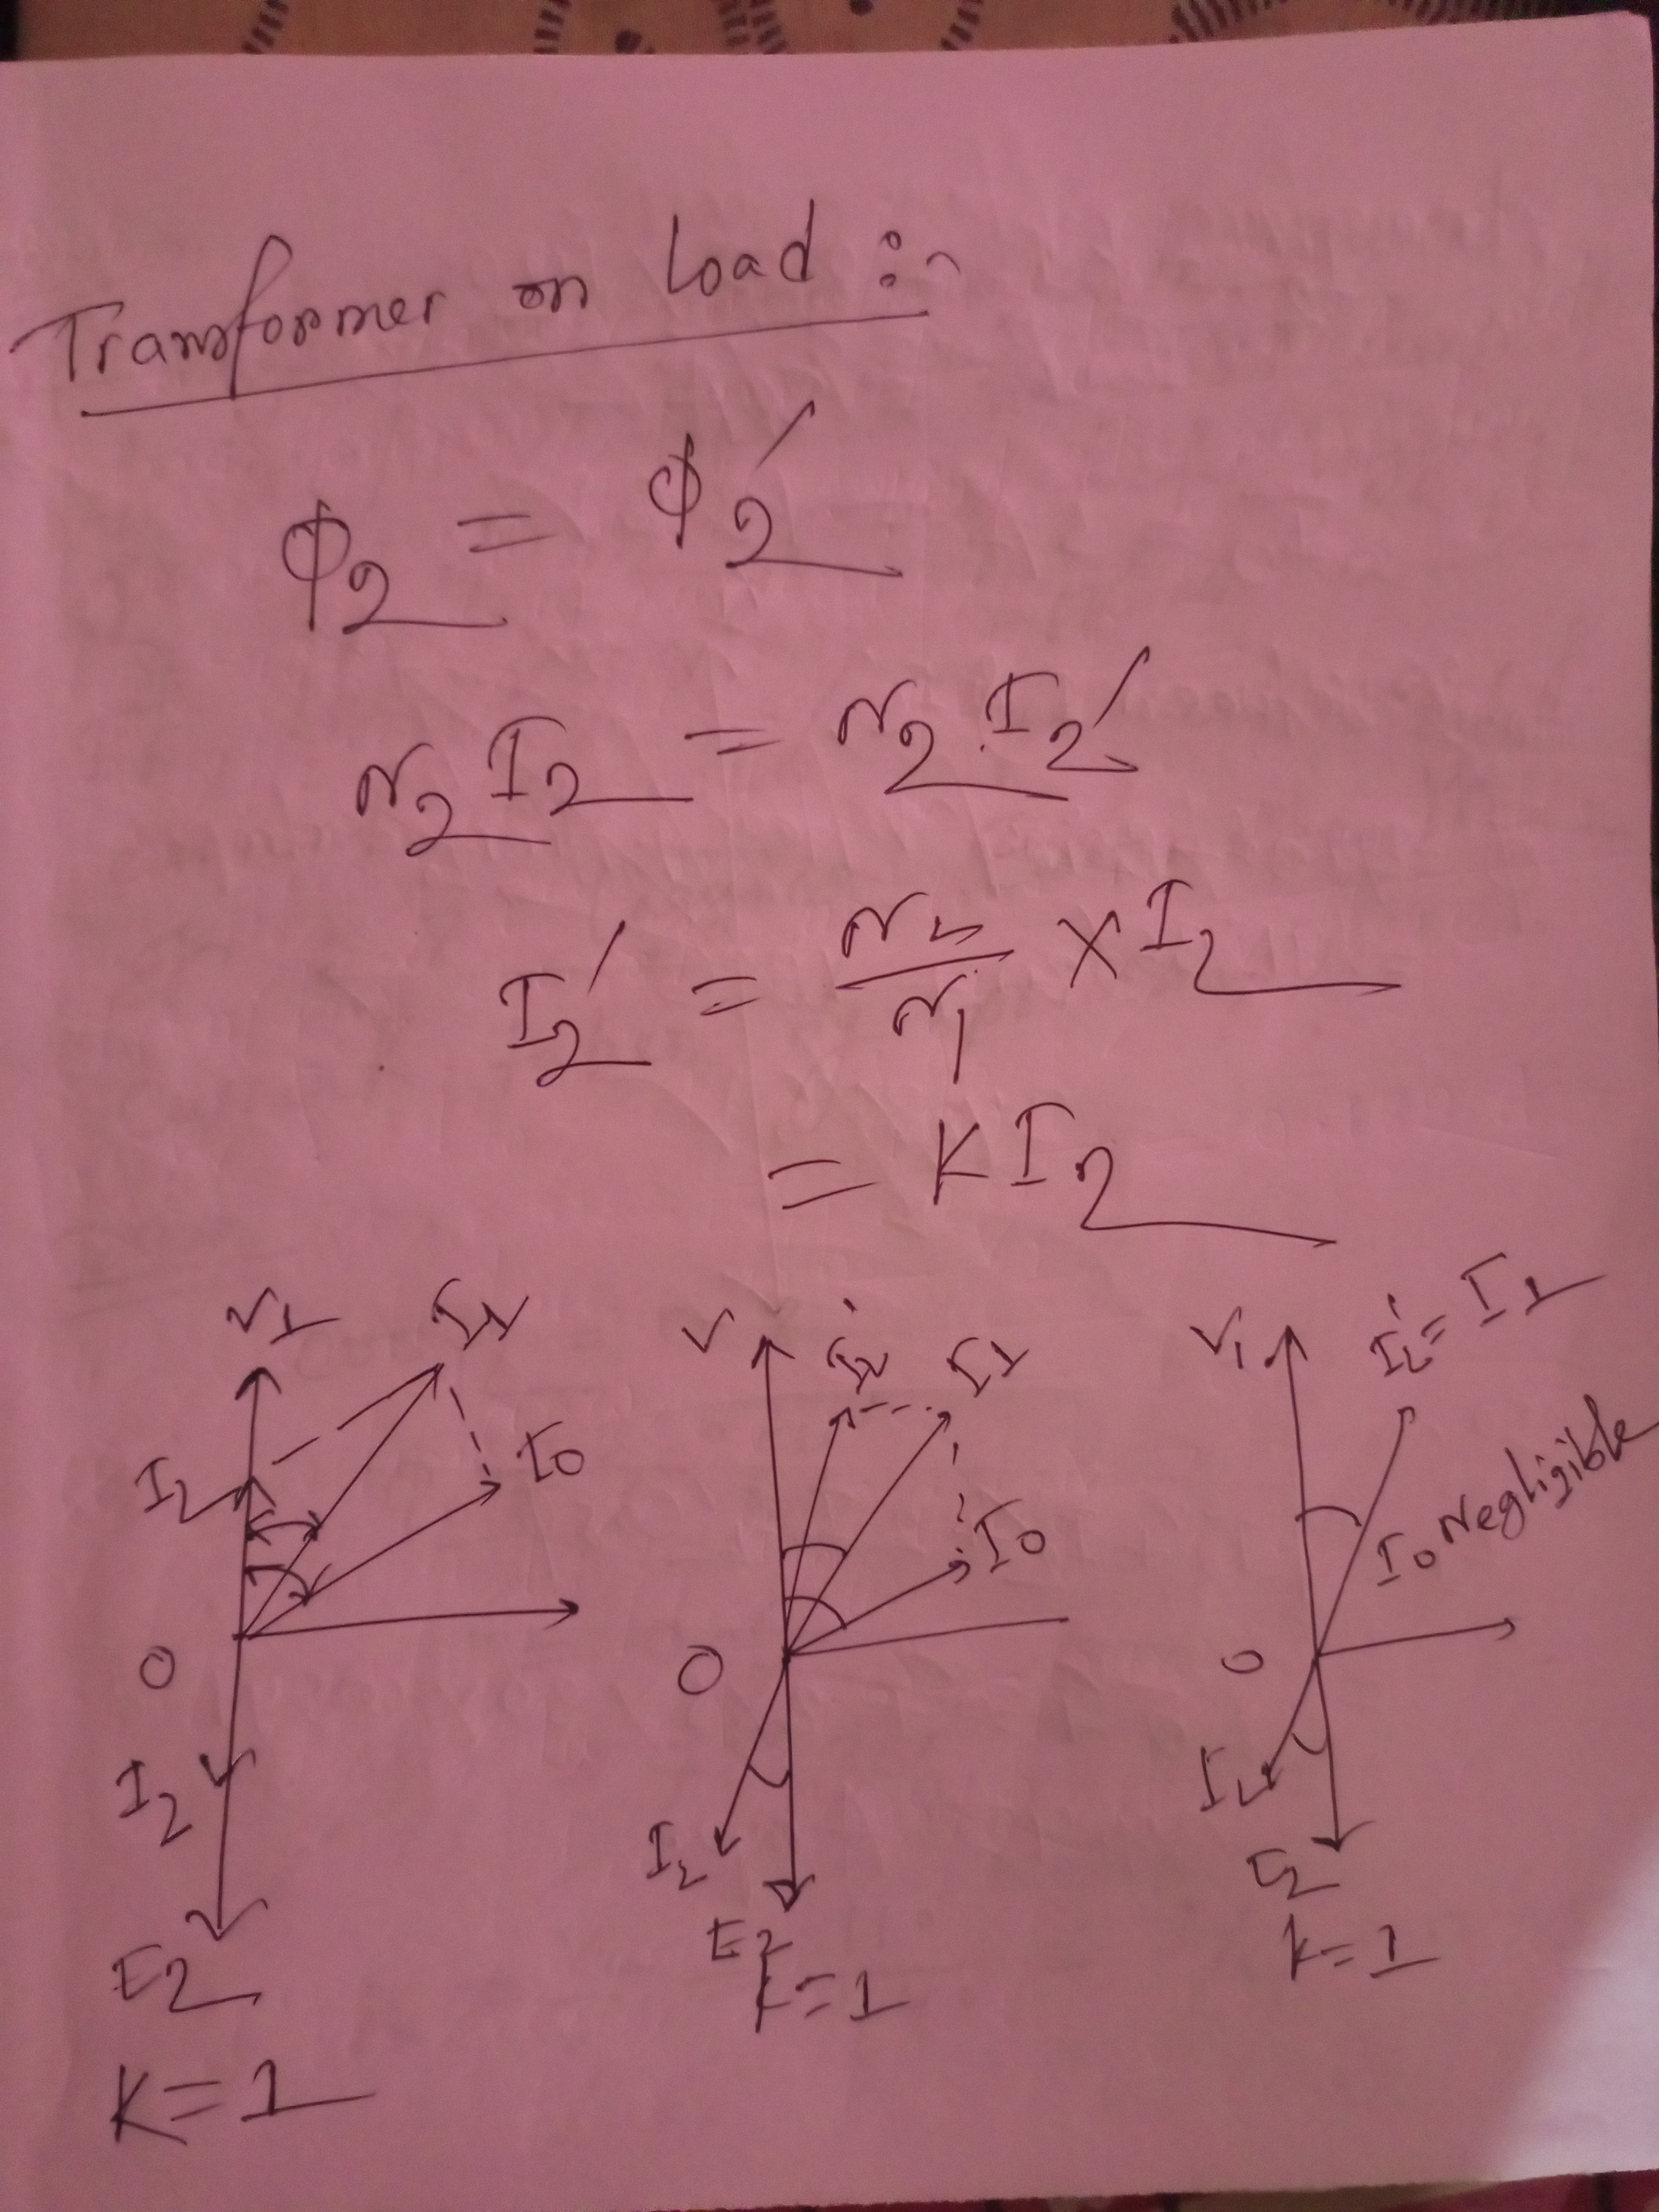 Transformer on Load :-
Φ2 = Φ2′
N2 I2 = N2 I2′
I2′ = N2/N1 × I2
= K I2
V1 I1 I2 I0 O I2 E2 K=1
V I2′ I1 I0 O I2 E2 K=1
V1 I2′ = I1 I0 Negligible O I2 E2 K=1